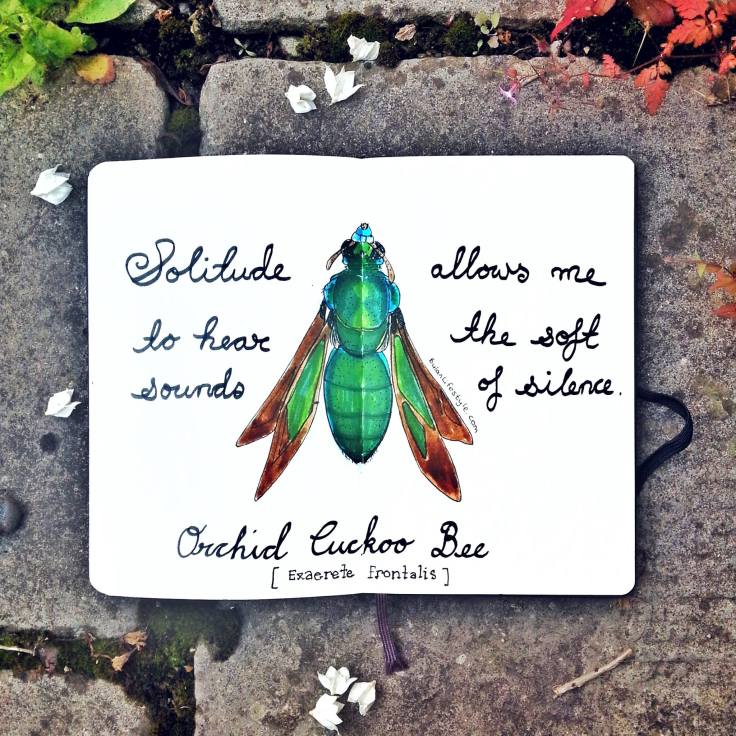 Solitude allows me
to hear the soft
sounds of silence.
bulanlifestyle.com
Orchid Cuckoo Bee
[ Exaerete frontalis ]